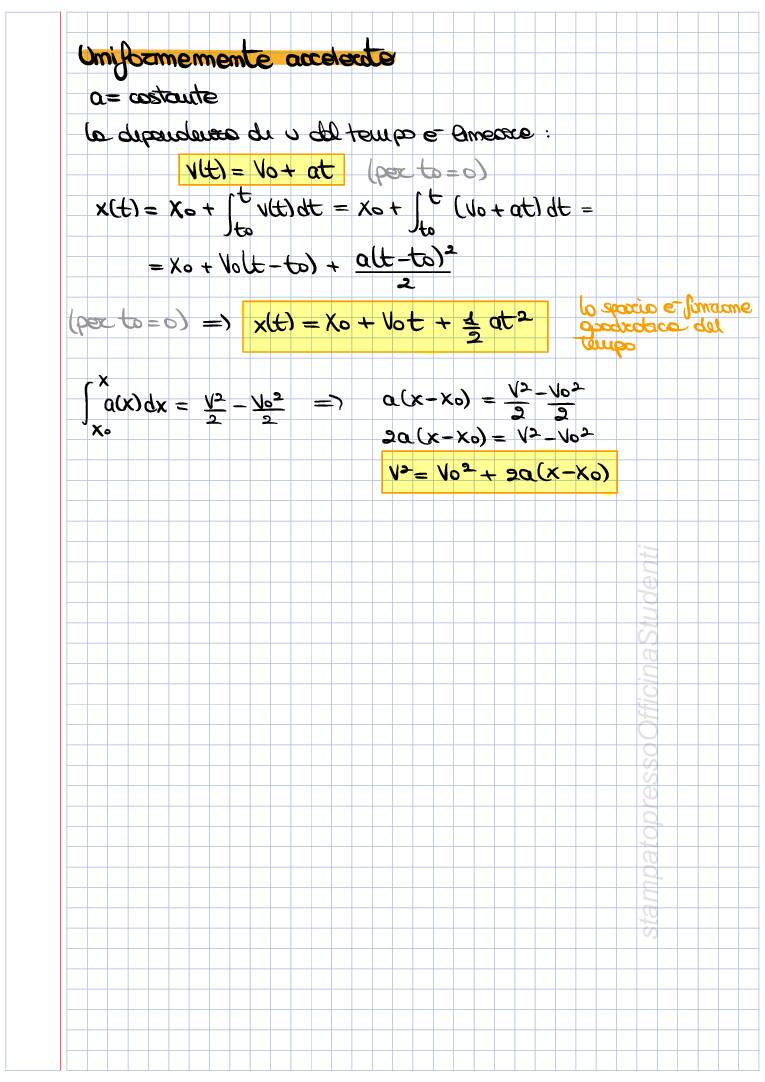 Uniformemente accelerato
a = costante
la dipendenza di v dal tempo è lineare :
v(t) = v₀ + at (per t₀ = 0)
x(t) = x₀ + ∫_{t₀}^{t} v(t) dt = x₀ + ∫_{t₀}^{t} (v₀ + at) dt =
= x₀ + v₀(t - t₀) + a(t - t₀)²/2
(per t₀ = 0) => x(t) = x₀ + v₀t + 1/2 at²
lo spazio è funzione
quadratica del
tempo
∫_{x₀}^{x} a(x) dx = v²/2 - v₀²/2 => a(x - x₀) = v²/2 - v₀²/2
2a(x - x₀) = v² - v₀²
v² = v₀² + 2a(x - x₀)
stampatopressoOfficinaStudenti